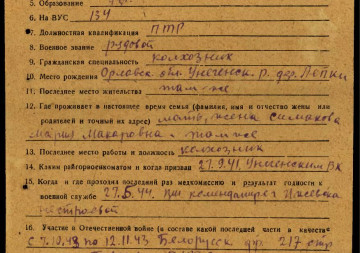 5. Образование
6. На ВУС 134
7. Должностная квалификация ПТР
8. Военное звание рядовой
9. Гражданская специальность колхозник
10. Место рождения Орловск. обл. Унеченск. р. дер.
11. Последнее место жительства там-же
12. Где проживает в настоящее время семья (фамилия, имя и отчество жены или
родителей и точный их адрес) мать, жена Симакова
Мария Макаровна - там же
13. Последнее место работы и должность колхозник
14. Каким райгорвоенкоматом и когда призван 27.9.41. Унеченским ВК
15. Когда и где проходил последний раз медкомиссию и результат годности к
военной службе 27.5.44. При г. Ижевска
нестроевой
16. Участие в Отечественной войне (в составе какой последней части в качестве
с 7.10.43 по 12.11.43 Белорусск. 217 стр